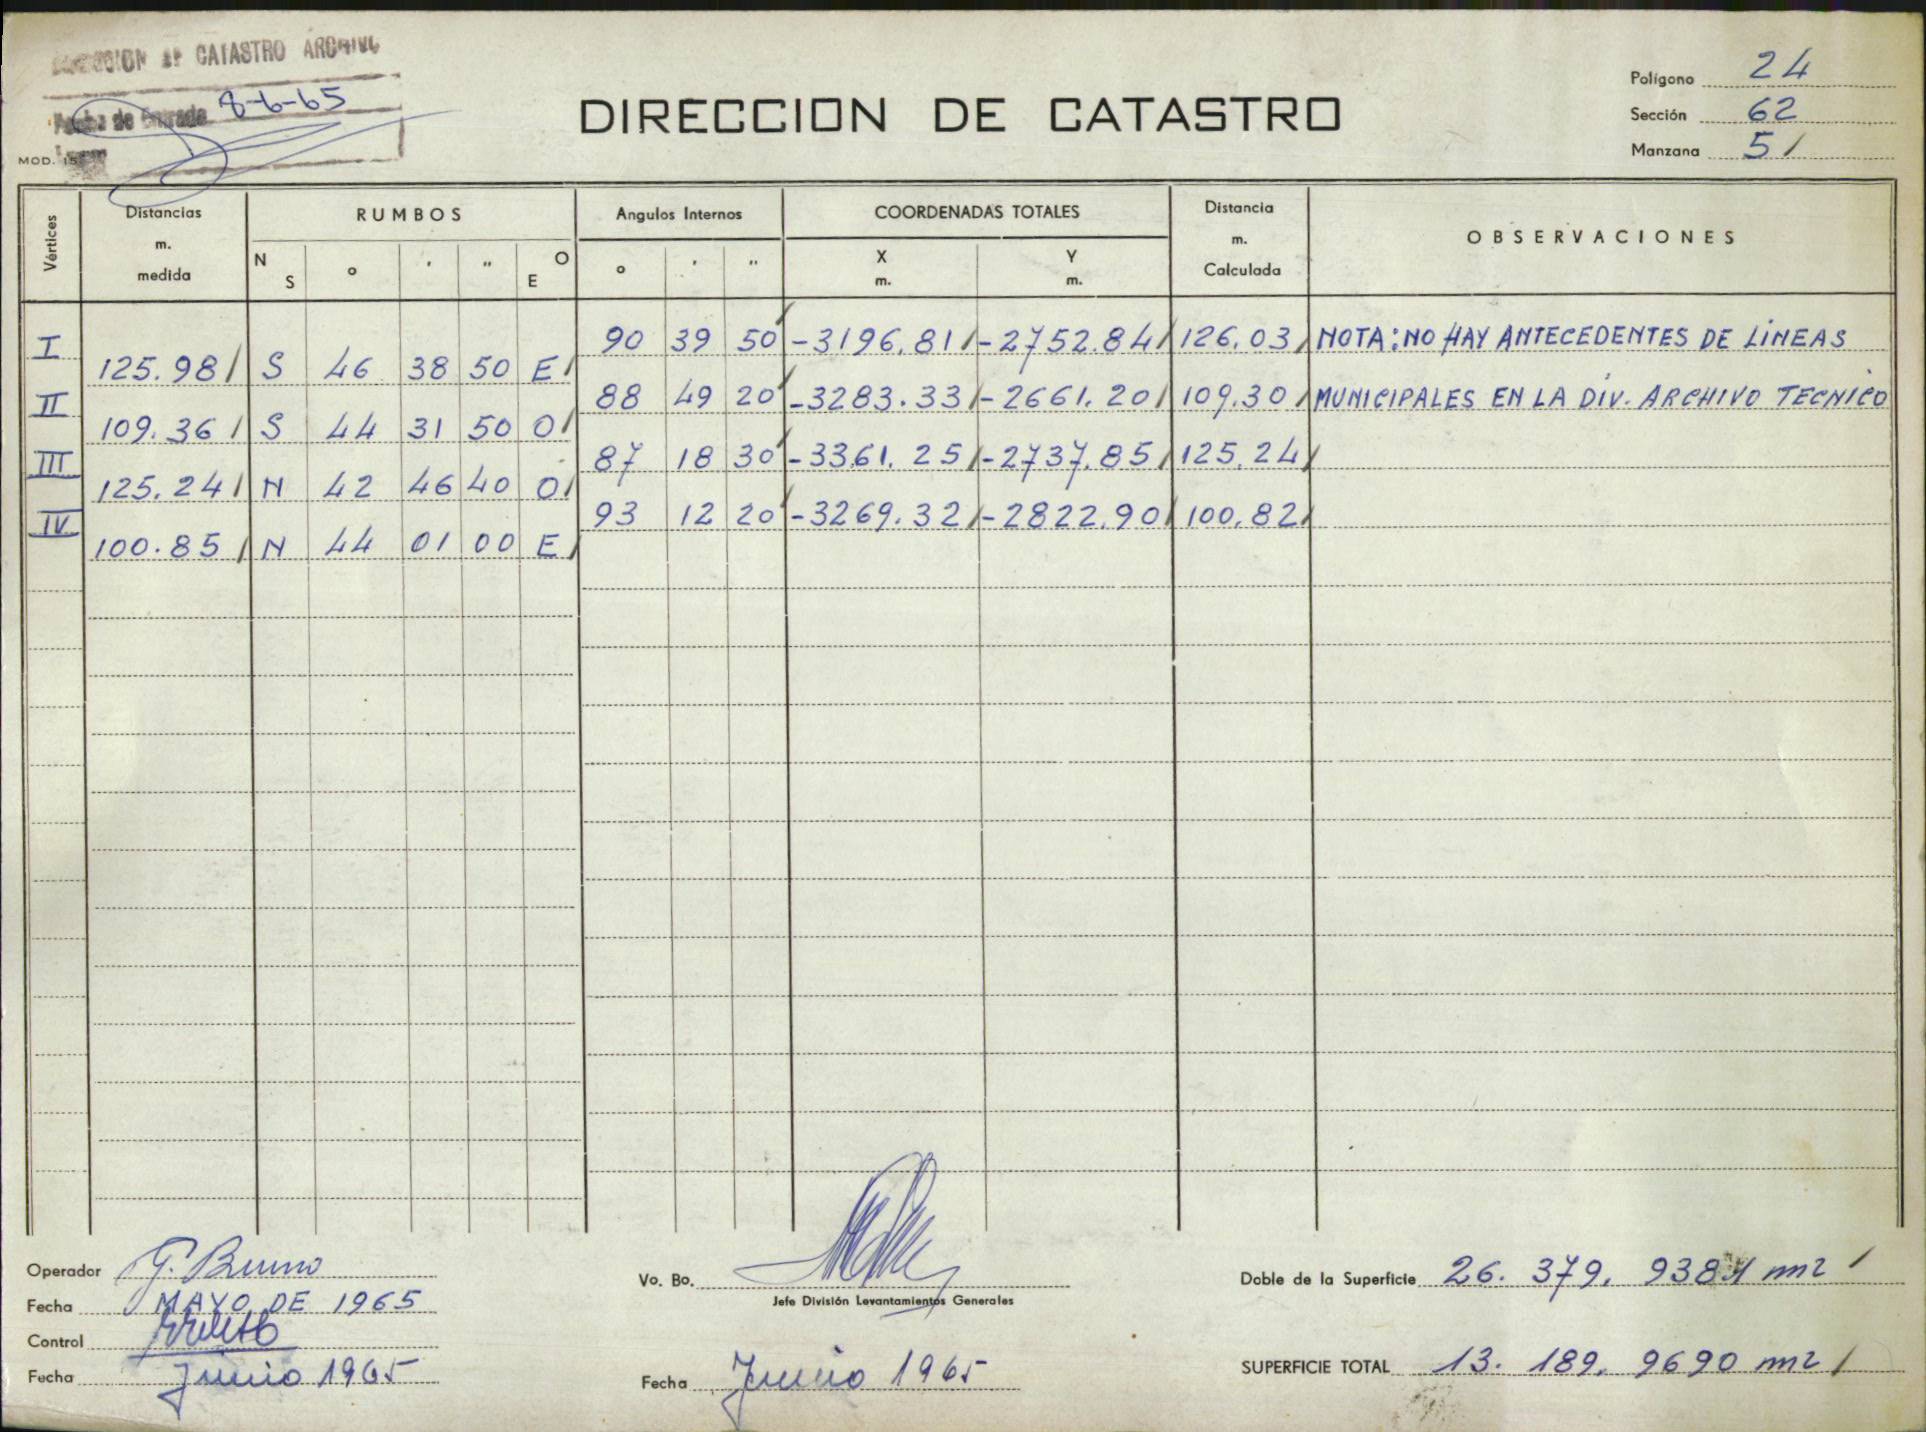 DIRECCION DE CATASTRO ARCHIVO
Fecha de Entrada 8-6-65
MOD. 15
DIRECCION DE CATASTRO
Polígono 24
Sección 62
Manzana 51
Vértices
Distancias m. medida
RUMBOS
N S ° ' " O E
Angulos Internos
° ' "
COORDENADAS TOTALES
X m. Y m.
Distancia m. Calculada
OBSERVACIONES
I 90 39 50 -3196.81 -2752.84 126.03 NOTA: NO HAY ANTECEDENTES DE LINEAS
125.98 S 46 38 50 E
II 88 49 20 -3283.33 -2661.20 109.30 MUNICIPALES EN LA DIV. ARCHIVO TECNICO
109.36 S 44 31 50 O
III 87 18 30 -3361.25 -2737.85 125.24
125.24 N 42 46 40 O
IV 93 12 20 -3269.32 -2822.90 100.82
100.85 N 44 01 00 E
Operador G. Bruno
Fecha MAYO DE 1965
Control
Fecha Junio 1965
Vo. Bo.
Jefe División Levantamientos Generales
Fecha Junio 1965
Doble de la Superficie 26.379,9381 m2
SUPERFICIE TOTAL 13.189,9690 m2